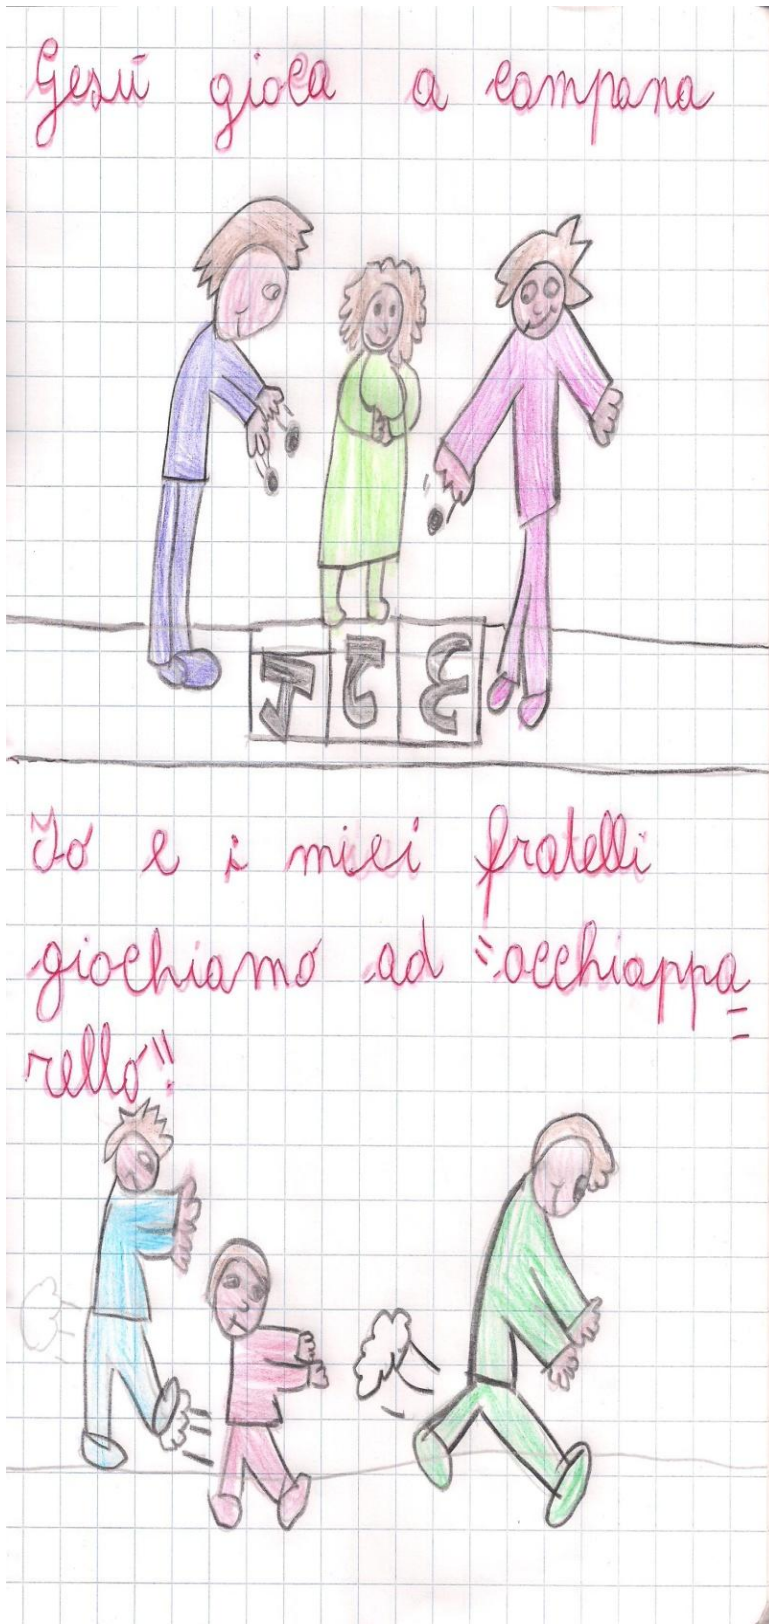 Gesù gioca a campana
1 2 3
Io e i miei fratelli
giochiamo ad "occhiappa=
rello".